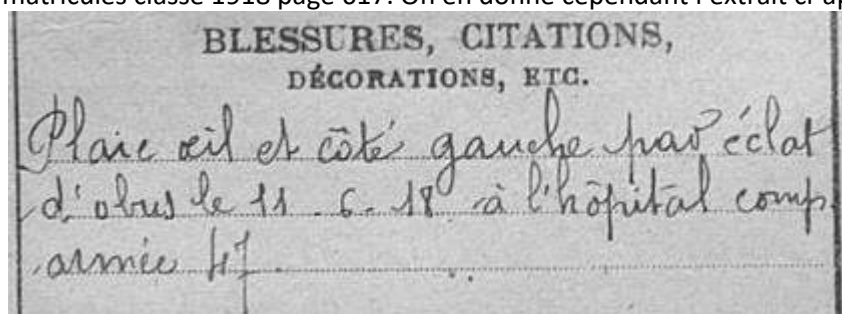 matricules classe 1918 page 617. On en donne cependant l'extrait ci-ap
BLESSURES, CITATIONS,
DÉCORATIONS, ETC.
Plaie œil et côté gauche par éclat
d'obus le 11.6.18 à l'hôpital comp.
armée